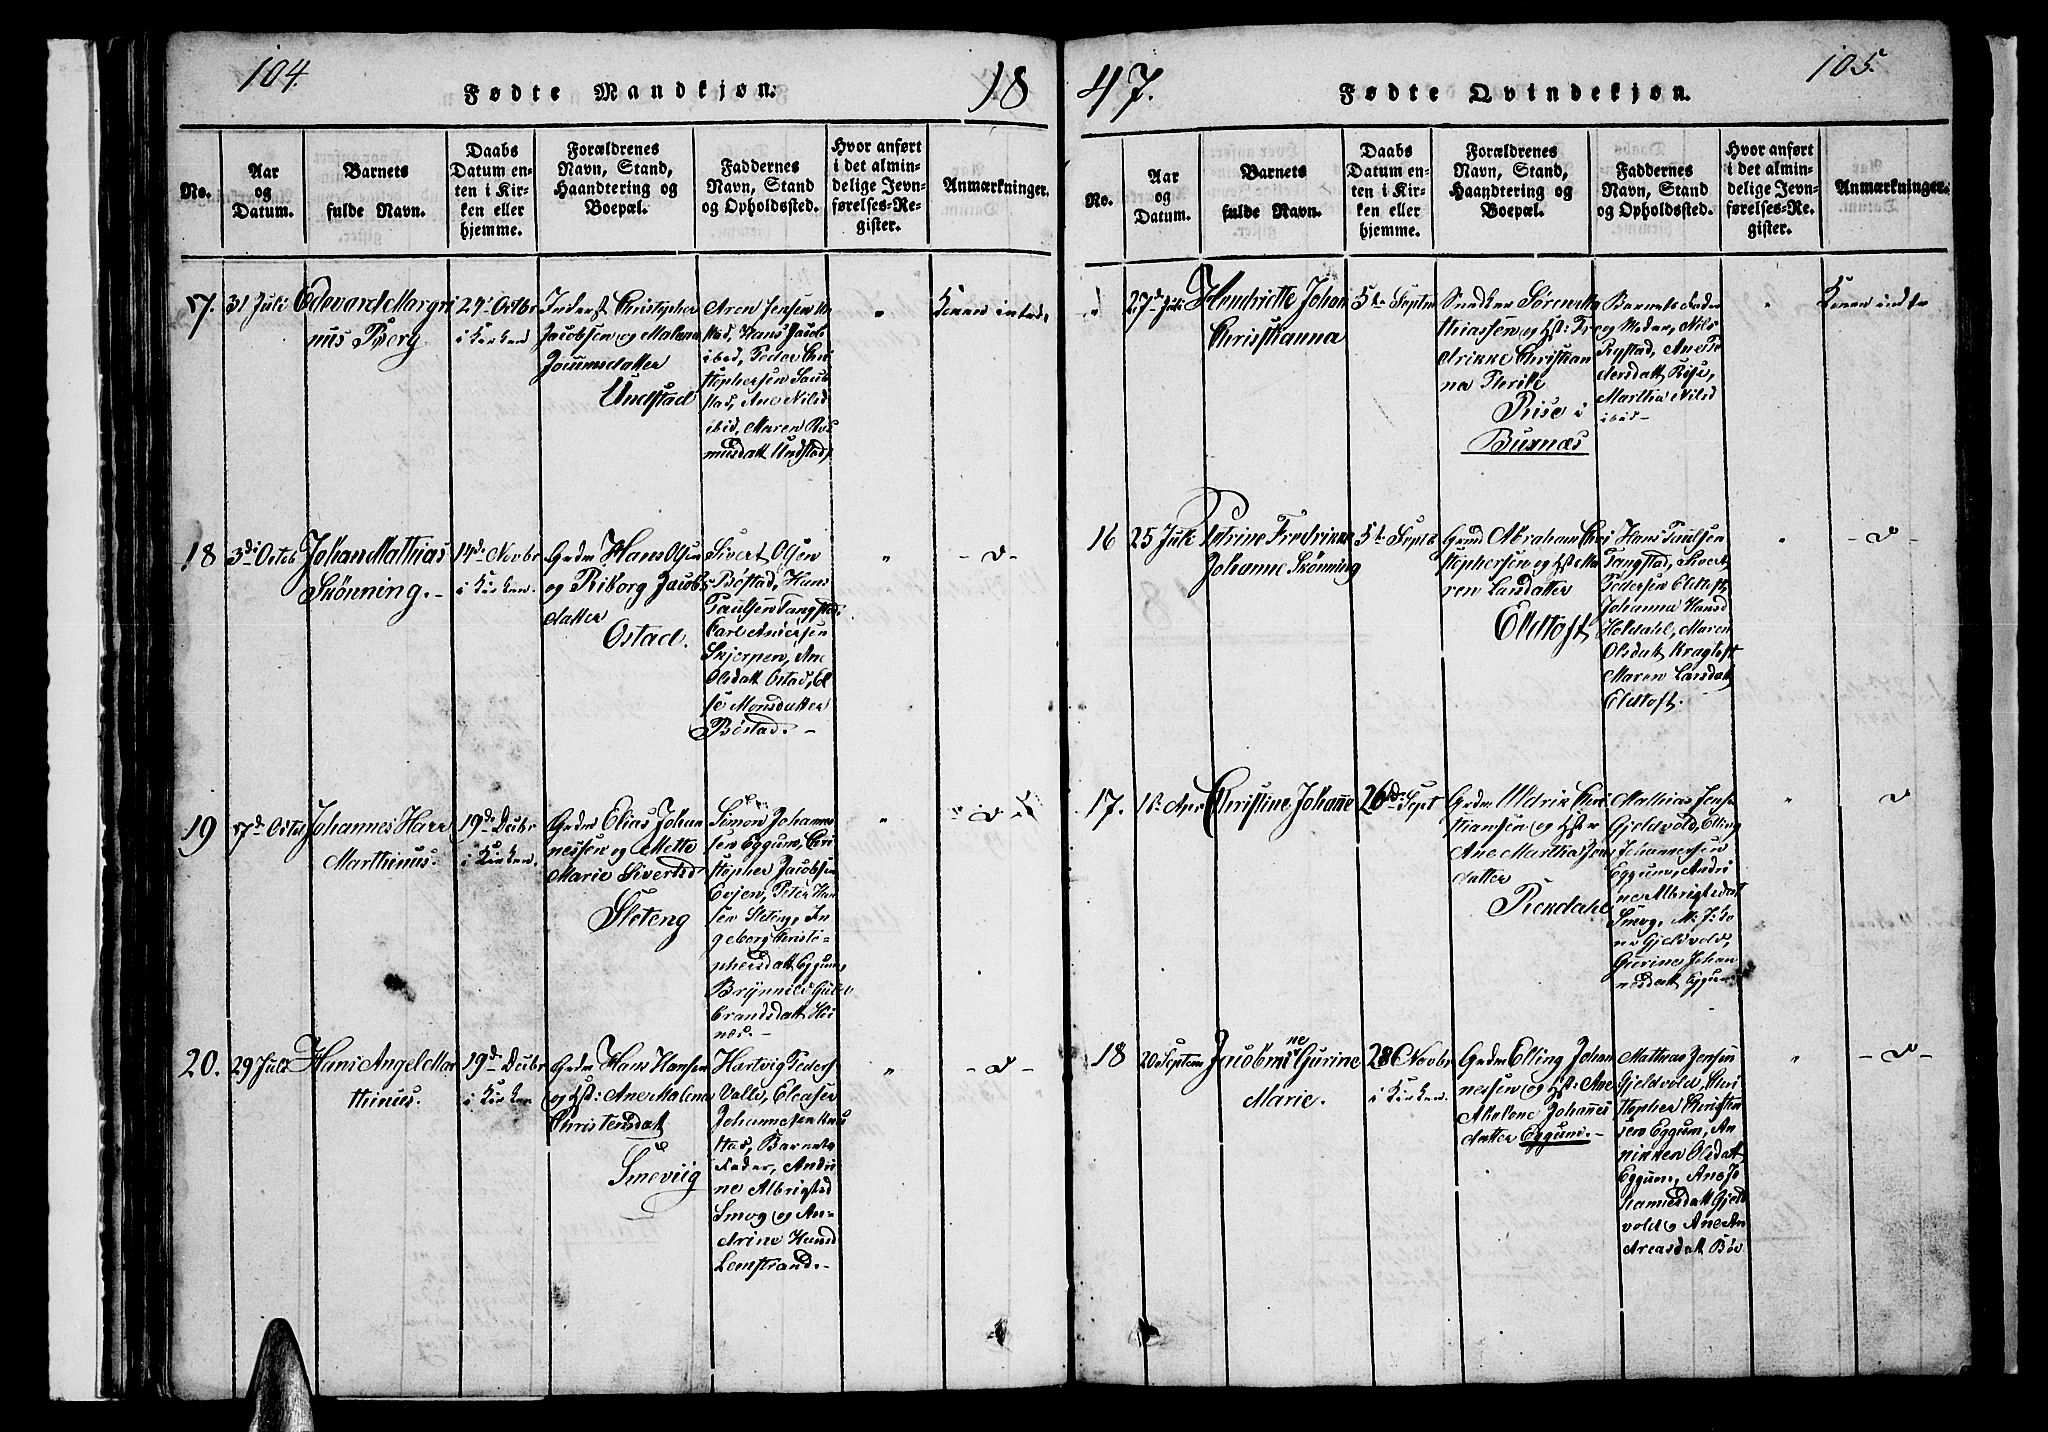 104.
Fødte Mandkjøn.
18
No.
Aar
og
Datum.
Barnets
fulde Navn.
Daabs
Datum en-
ten i Kir-
ken eller
hjemme.
Forældrenes
Navn, Stand,
Haandtering og
Boepæl.
Faddernes
Navn, Stand
og Opholdssted.
Hvor anført
i det almin-
delige Jevn-
førelses-Re-
gister.
Anmærkninger.
17.
31 Juli
Edevard Margri
nus Borg
24 Octbr
i Kirken
Inderst Christopher
Jacobsen og Malena
datter
Undstad
Aren Jensen
stad, Hans Jacob
ibid, Peder Chri
stophersen
stad, Ane Nils
ibid, Maren Ras
musdatt Undstad
"
18
3di Octob
Johan Mathias
Skönning.-
14de Novbr
i Kirken.
Grdm Hans Olsen
og Riborg Jacobs
datter
Ostad.
Sivert Olsen
Böstad, Hans
Paulsen Tangstad,
Carl Andersen
Skjerpen, Ane
Olsdatt Ostad, El
se Monsdatter
Böstad.-
"
19
7de Octob
Johannes
Marthinus.
19de Decbr
i Kirken.
Grdm Elias Johan
nessen og Mette
Marie Sivertsd
Steteng
Simon Johannes
sen Eggum, Chri
stopher Jacobsen
Evjen, Peter Han
sen Steteng, In
geborg Christo-
phersdatt Eggum,
Brynnild Guld
brandsdatt
"
20.
29 Juli
Hans Angel Mar
thinus.
19de Decbr
i Kirken
Grdm Hans Hansen
og Hst: Ane Malena
Christensdatt
Smeviig
Hartvig Peders
Valle, Eleaser
Johannesen
stad, Barnets
Fader, Andri
ne Albrigtsd
Smog og An-
drine Hansd
Lemstrand.-
"
47.
Fødte Qvindekjøn.
105.
No.
Aar
og
Datum.
Barnets
fulde Navn.
Daabs
Datum en-
ten i Kir-
ken eller
hjemme.
Forældrenes
Navn, Stand,
Haandtering og
Boepæl.
Faddernes
Navn, Stand
og Opholdssted.
Hvor anført
i det almin-
delige Jevn-
førelses-Re-
gister.
Anmærkninger.
27de Juli
Hendriette Johan
Christianna
5te Septbr
Snedker Sören Ma
thiassen og Hst: Fre
drikke Christian
na
Rise i
Buxnæs
Barnets Fader
og Moder, Nils
Rystad, Ane Pe
dersdatt Rise,
Martha Nilsd
ibid-
"
16
25 Juli
Petrine Fredrikke
Johanne Skönning
5te Septb
Grmd Abraham Chri
stophersen og Hst: Ma
ren Larsdatter
Eldtoft
Hans Paulsen
Tangstad, Sivert
Pedersen Eldtoft,
Johanna Hansd
Holdahl, Maren
Olsdatt Kragtoft
Maren Larsdatt
Eldtoft.
"
17.
Christine Johanne
26de Sept
Grdm Uldrik Chri
stiansen og Hstr
Ane Martha Jens
datter
Rendahl
Mathias Jens
Gjeldvold, Elling
Johannesen
Eggum, Andri
ne Albrigtsdatt
Smog,
Gjeldvold,
Gurine Johan
nesdatt Eggum
"
18
20 Septem
Jacobmine Gurine
Marie.
28 Novbr
i Kirken.
Grdm Elling Johan
nessen og Hst: Ane
Johannes
datter Eggum.-
Mathias Jensen
Gjeldvold, Chri
stopher Christian
sen Eggum, An
nikken Olsdatt
Eggum, Ane Jo
hannesdatt Gjeld
vold og Ane An
dreasdatt Böe
"